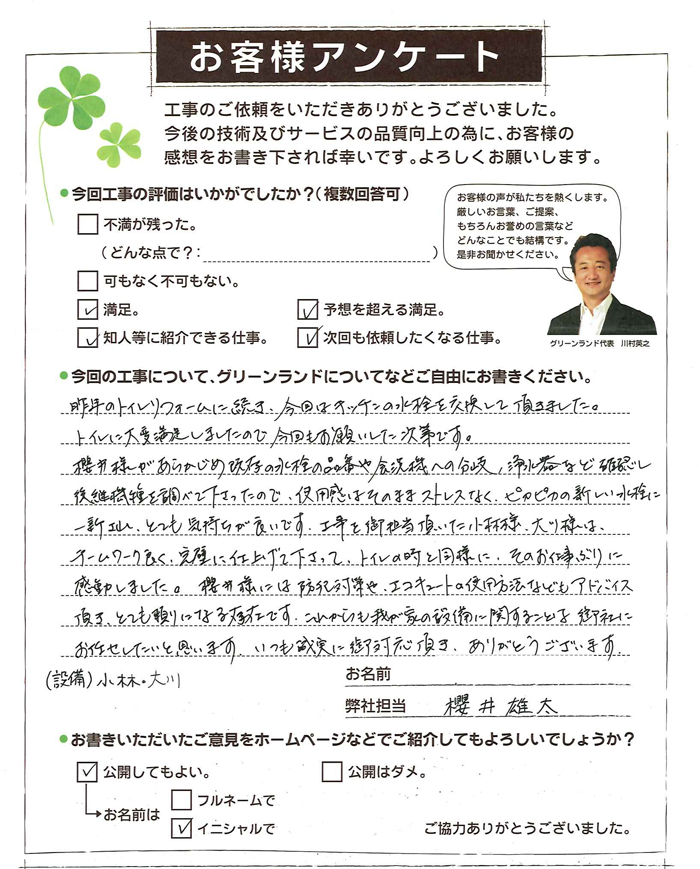 お客様アンケート
工事のご依頼をいただきありがとうございました。
今後の技術及びサービスの品質向上の為に、お客様の
感想をお書き下されば幸いです。よろしくお願いします。
●今回工事の評価はいかがでしたか?(複数回答可)
お客様の声が私たちを熱くします。
厳しいお言葉、ご提案、
もちろんお誉めの言葉など
どんなことでも結構です。
是非お聞かせください。
不満が残った。
(どんな点で?: )
可もなく不可もない。
満足。
予想を超える満足。
知人等に紹介できる仕事。
次回も依頼したくなる仕事。
グリーンランド代表 川村英之
●今回の工事について、グリーンランドについてなどご自由にお書きください。
昨年のトイレリフォームに続き、今回はキッチンの水栓を交換して頂きました。
トイレに大変満足しましたので今回もお願いした次第です。
櫻井様があらかじめ既存の水栓の品番や食洗機への分岐、浄水器など確認し
後継機種を調べて下さったので、使用感はそのままストレスなく、ピカピカの新しい水栓に
一新され、とても気持ちが良いです。工事を御担当頂いた小林様、大川様は、
チームワーク良く、完璧に仕上げて下さって、トイレの時と同様に、そのお仕事ぶりに
感動しました。櫻井様には防犯対策や、エコキュートの使用方法などもアドバイス
頂き、とても頼りになる存在です。これからも我が家の設備に関することは御社に
お任せしたいと思います。いつも誠実に御対応頂き、ありがとうございます。
(設備)小林・大川
お名前
弊社担当 櫻井雄太
●お書きいただいたご意見をホームページなどでご紹介してもよろしいでしょうか?
公開してもよい。
公開はダメ。
お名前は
フルネームで
イニシャルで
ご協力ありがとうございました。